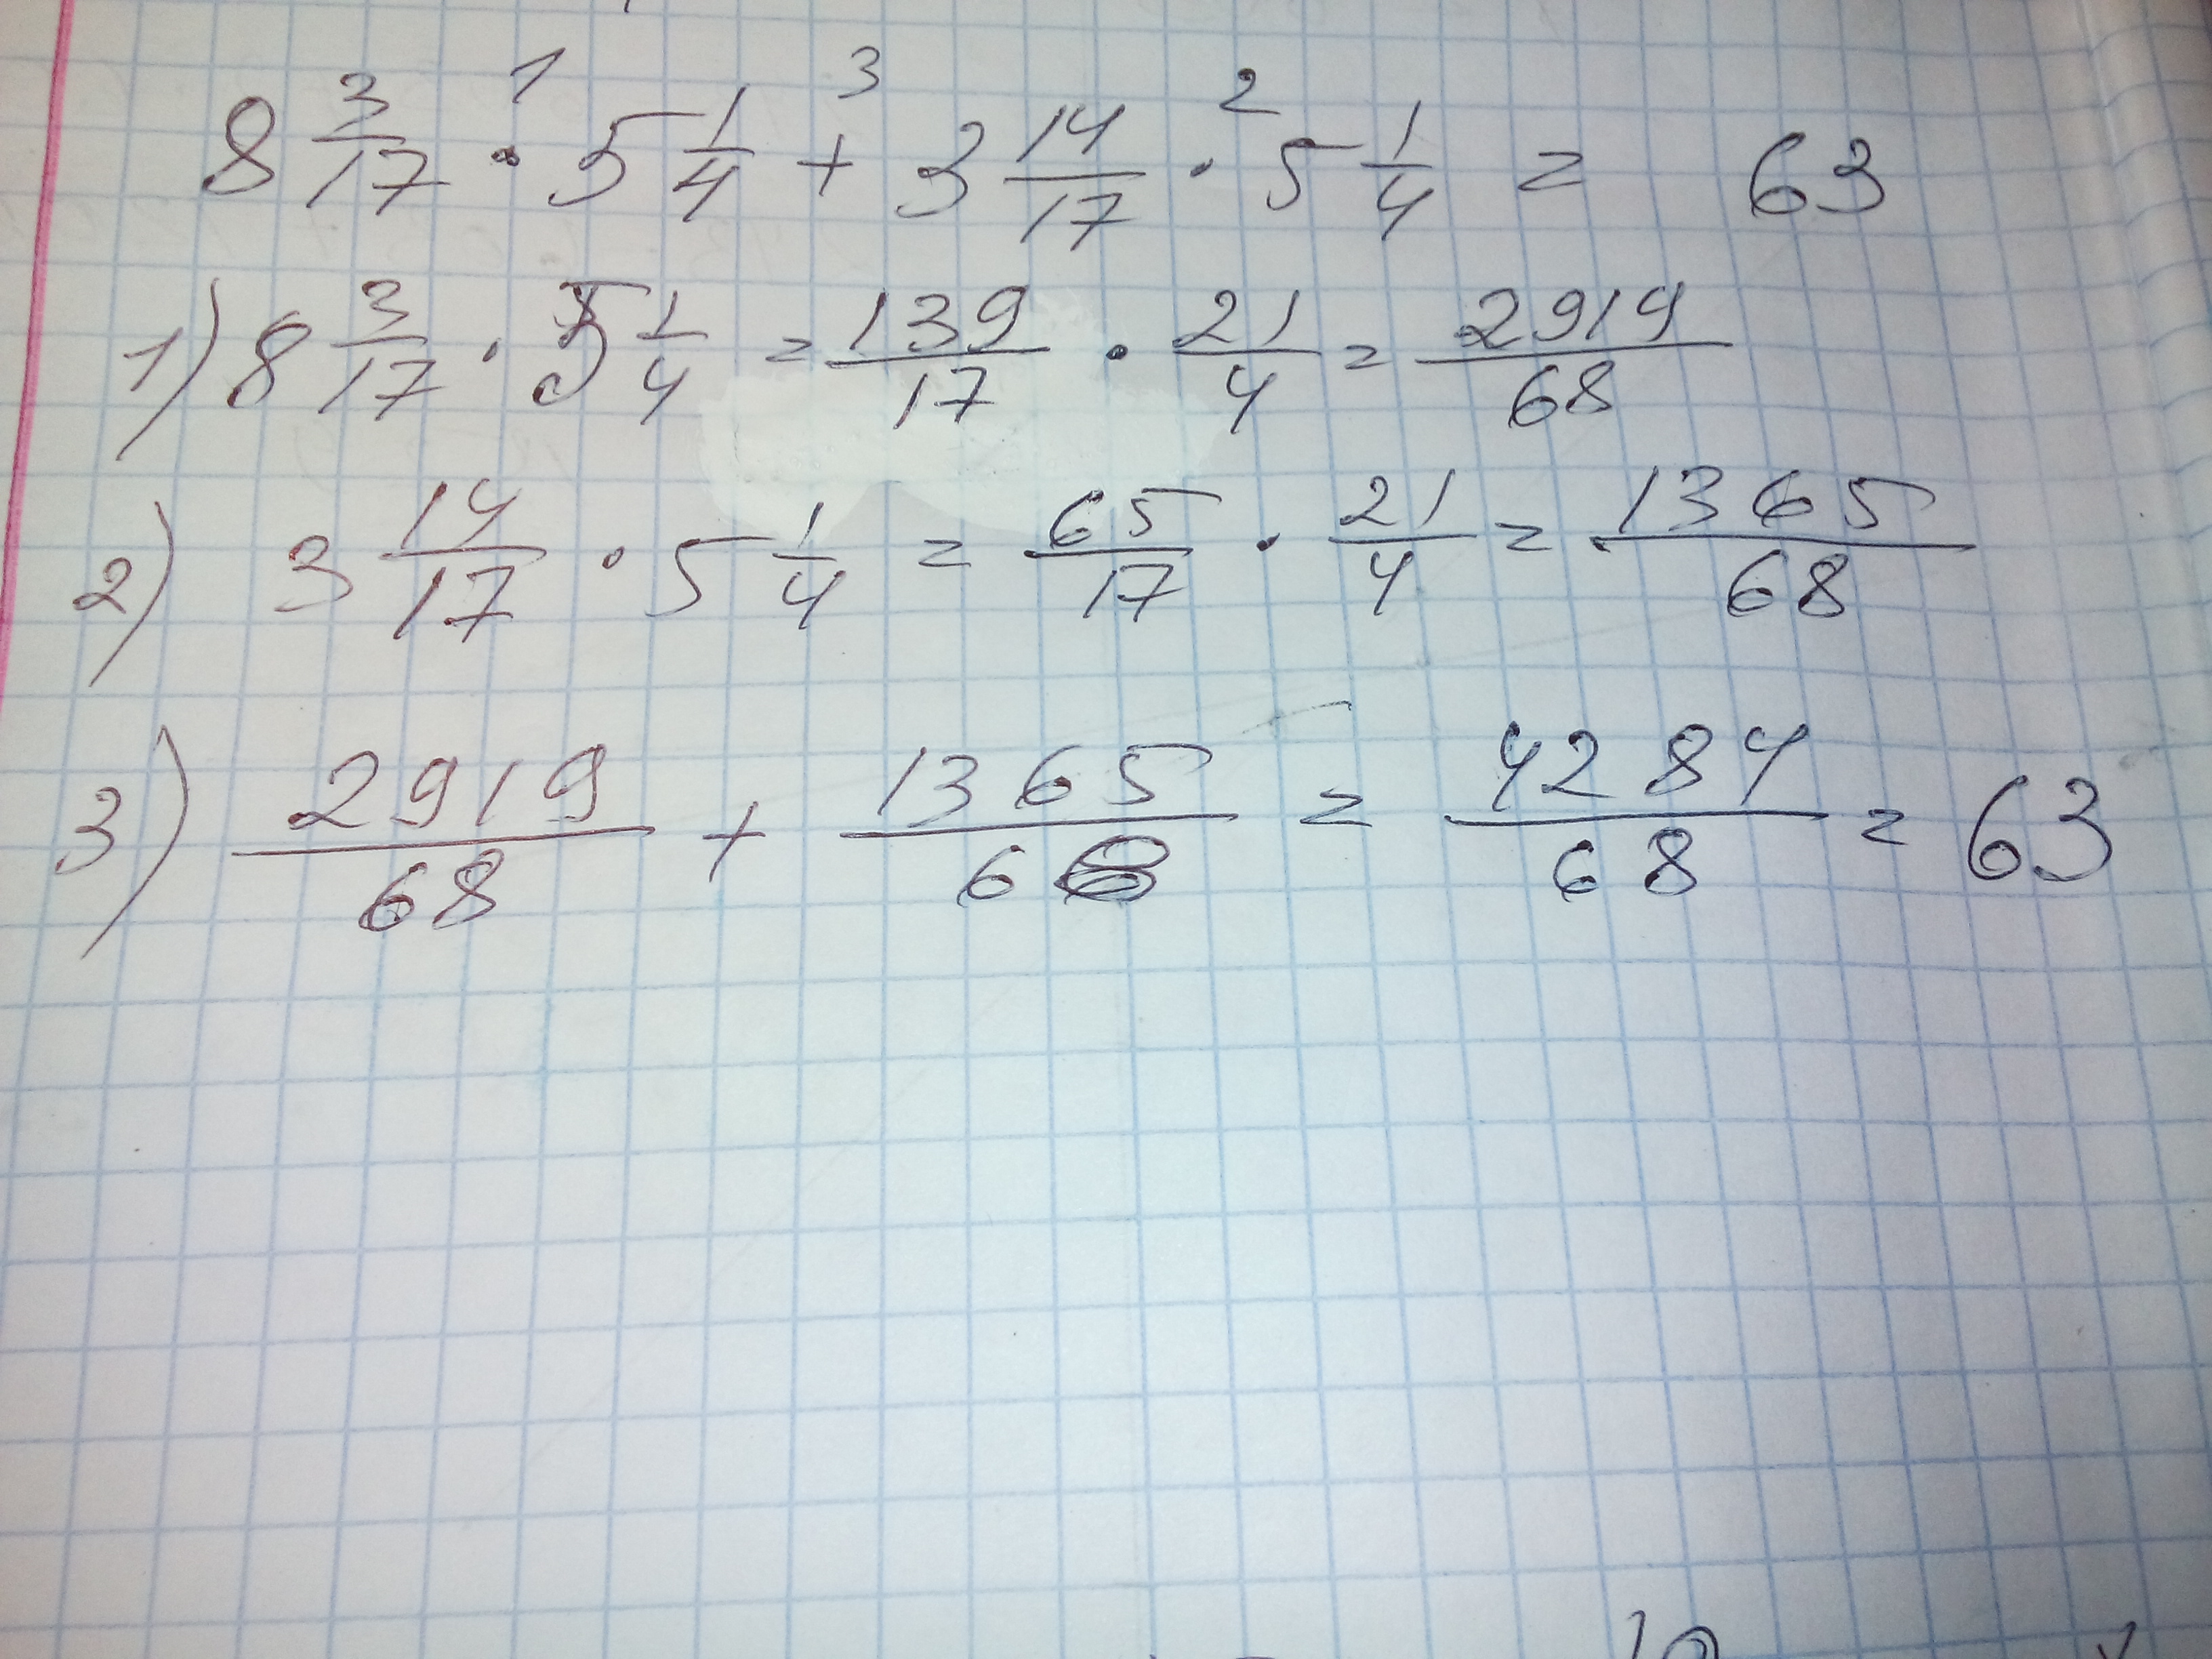 8 3/17 · 5 1/4 + 3 14/17 · 5 1/4 = 63
1 3 2
1) 8 3/17 · 5 1/4 = 139/17 · 21/4 = 2919/68
2) 3 14/17 · 5 1/4 = 65/17 · 21/4 = 1365/68
3) 2919/68 + 1365/68 = 4284/68 = 63